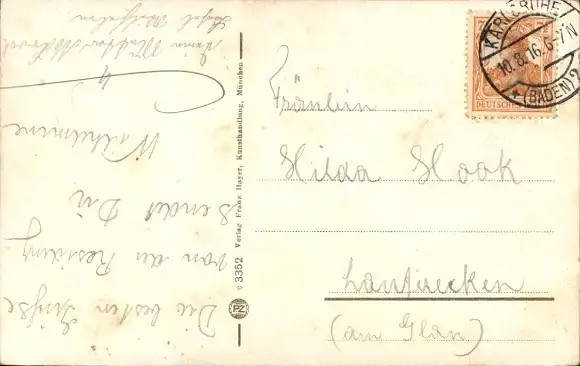 Die besten Grüße
von der Residenz
sendet Dir
Wilhelmine
G 3352 Verlag Franz Hayer, Kunsthandlung, München
PZ
KARLSRUHE
10.8.16. 6-7N
(BADEN) 2
DEUTSCHES
Fräulein
Hilda Hook
Lauterecken
(am Glan)